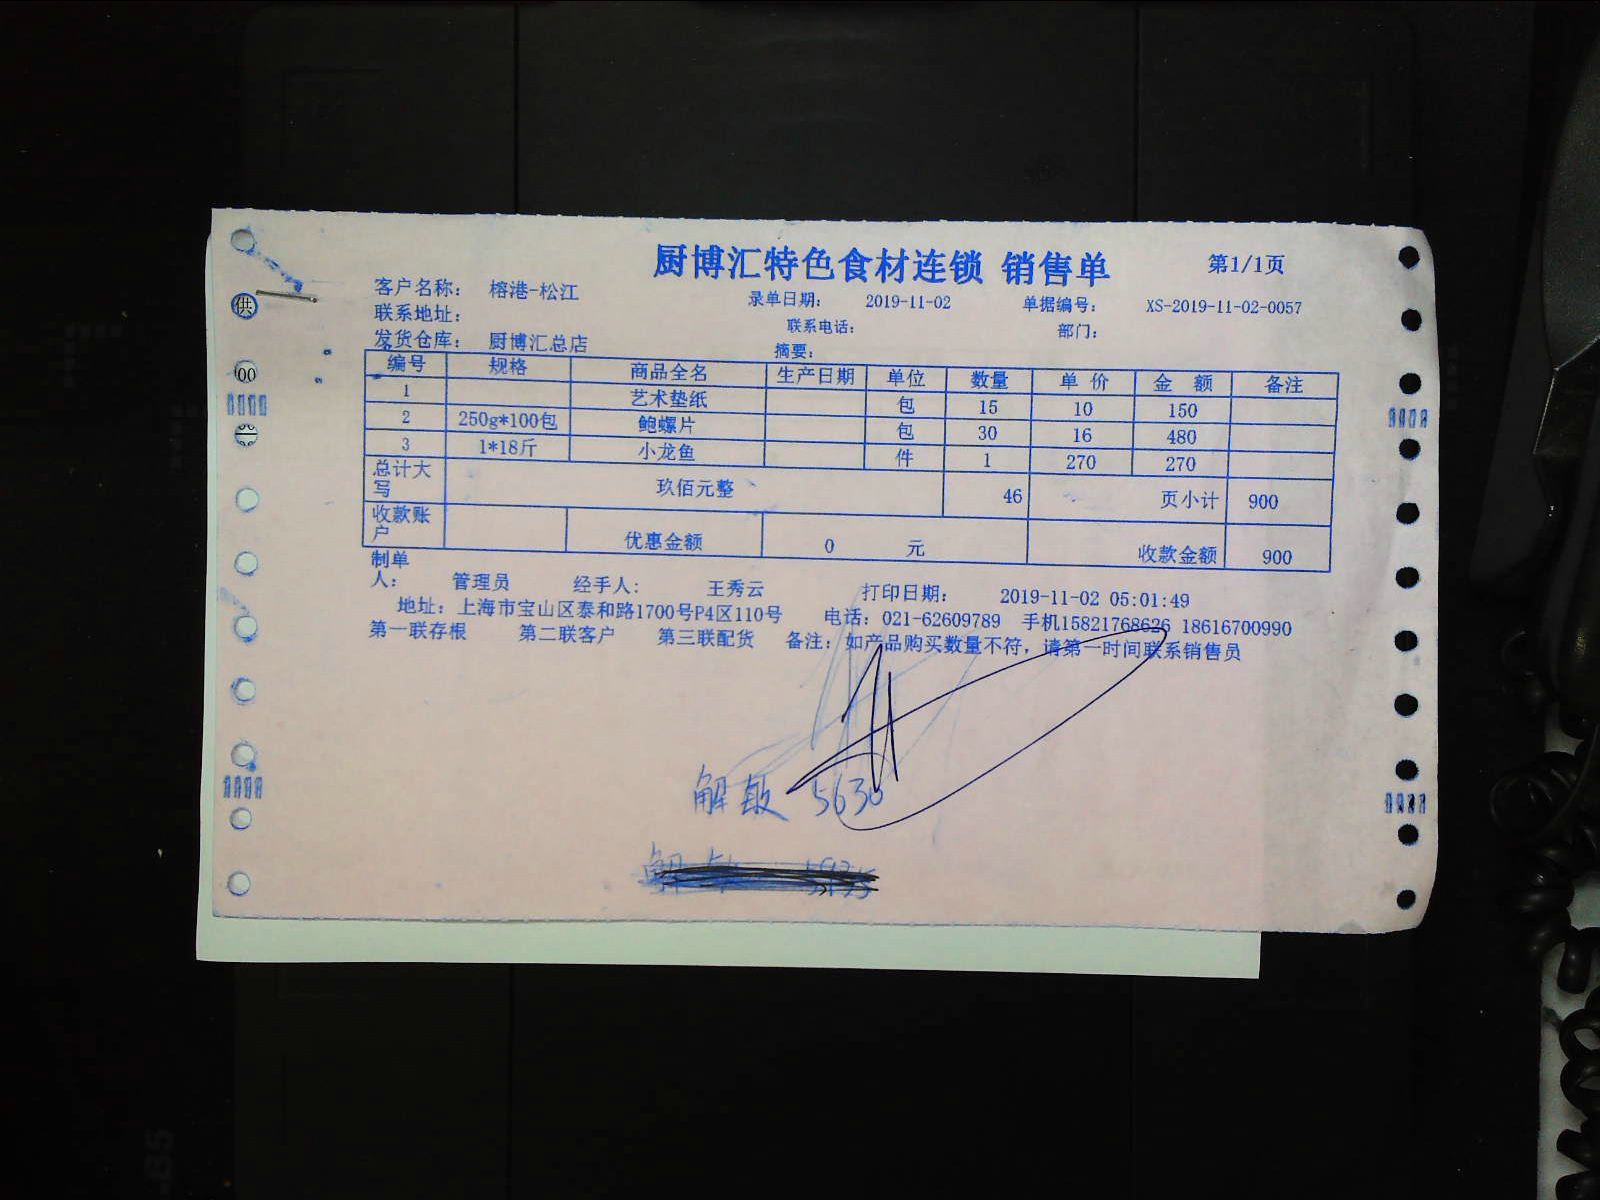 厨博汇特色食材连锁 销售单 第1/1页
客户名称： 榕港-松江 录单日期： 2019-11-02 单据编号： XS-2019-11-02-0057
联系地址： 联系电话： 部门：
发货仓库： 厨博汇总店 摘要：
编号 规格 商品全名 生产日期 单位 数量 单 价 金 额 备注
1 艺术垫纸 包 15 10 150
2 250g*100包 鲍螺片 包 30 16 480
3 1*18斤 小龙鱼 件 1 270 270
总计大写 玖佰元整 46 页小计 900
收款账户 优惠金额 0 元 收款金额 900
制单人： 管理员 经手人： 王秀云 打印日期： 2019-11-02 05:01:49
地址：上海市宝山区泰和路1700号P4区110号 电话：021-62609789 手机15821768626 18616700990
第一联存根 第二联客户 第三联配货 备注：如产品购买数量不符，请第一时间联系销售员
解 5630